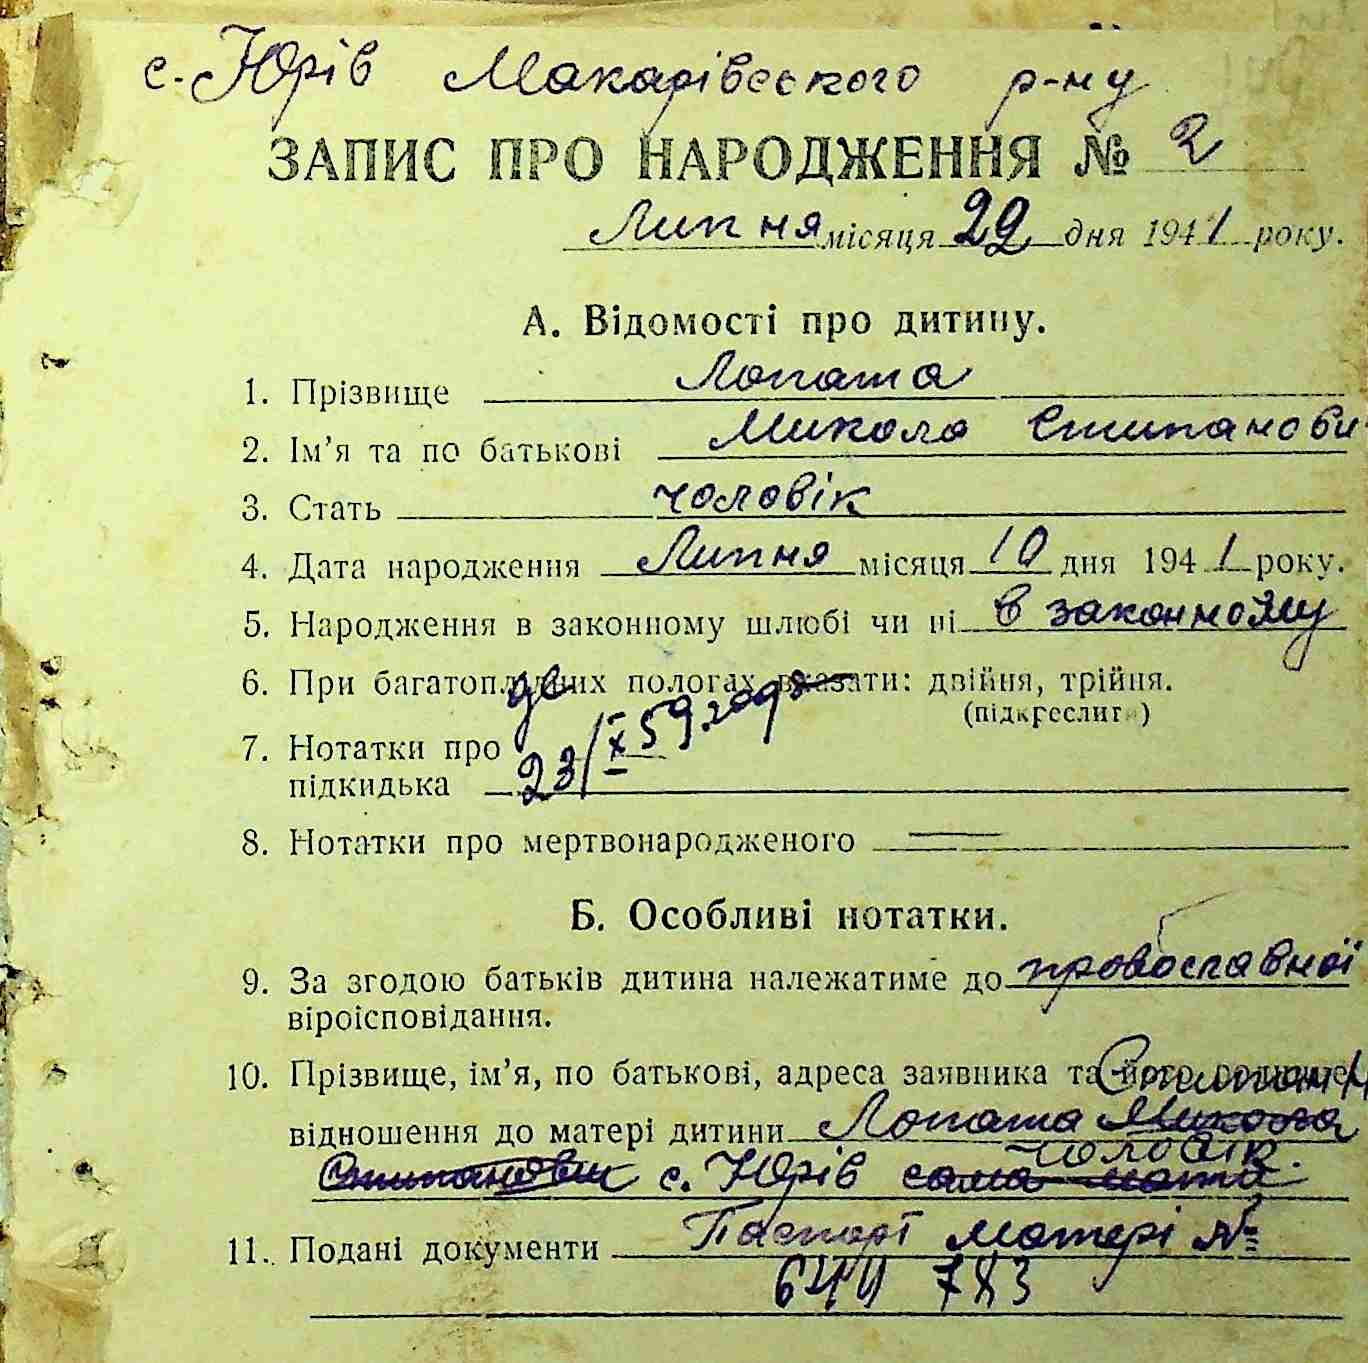 с. Юрів Макарівського р-ну
ЗАПИС ПРО НАРОДЖЕННЯ № 2
Липня місяця 22 дня 1941 року.
А. Відомості про дитину.
1. Прізвище Лопата
2. Ім’я та по батькові Микола Стипанови
3. Стать чоловік
4. Дата народження Липня місяця 10 дня 1941 року.
5. Народження в законному шлюбі чи ні в законному
6. При багатоплідних пологах вказати: двійня, трійня.
(підкреслити)
7. Нотатки про
підкидька 23/X 59 года
8. Нотатки про мертвонародженого
Б. Особливі нотатки.
9. За згодою батьків дитина належатиме до провославної
віроісповідання.
10. Прізвище, ім’я, по батькові, адреса заявника та його
відношення до матері дитини Лопата Микола
Стипанович с. Юрів сама мати чоловік.
11. Подані документи Паспорт матері №
783